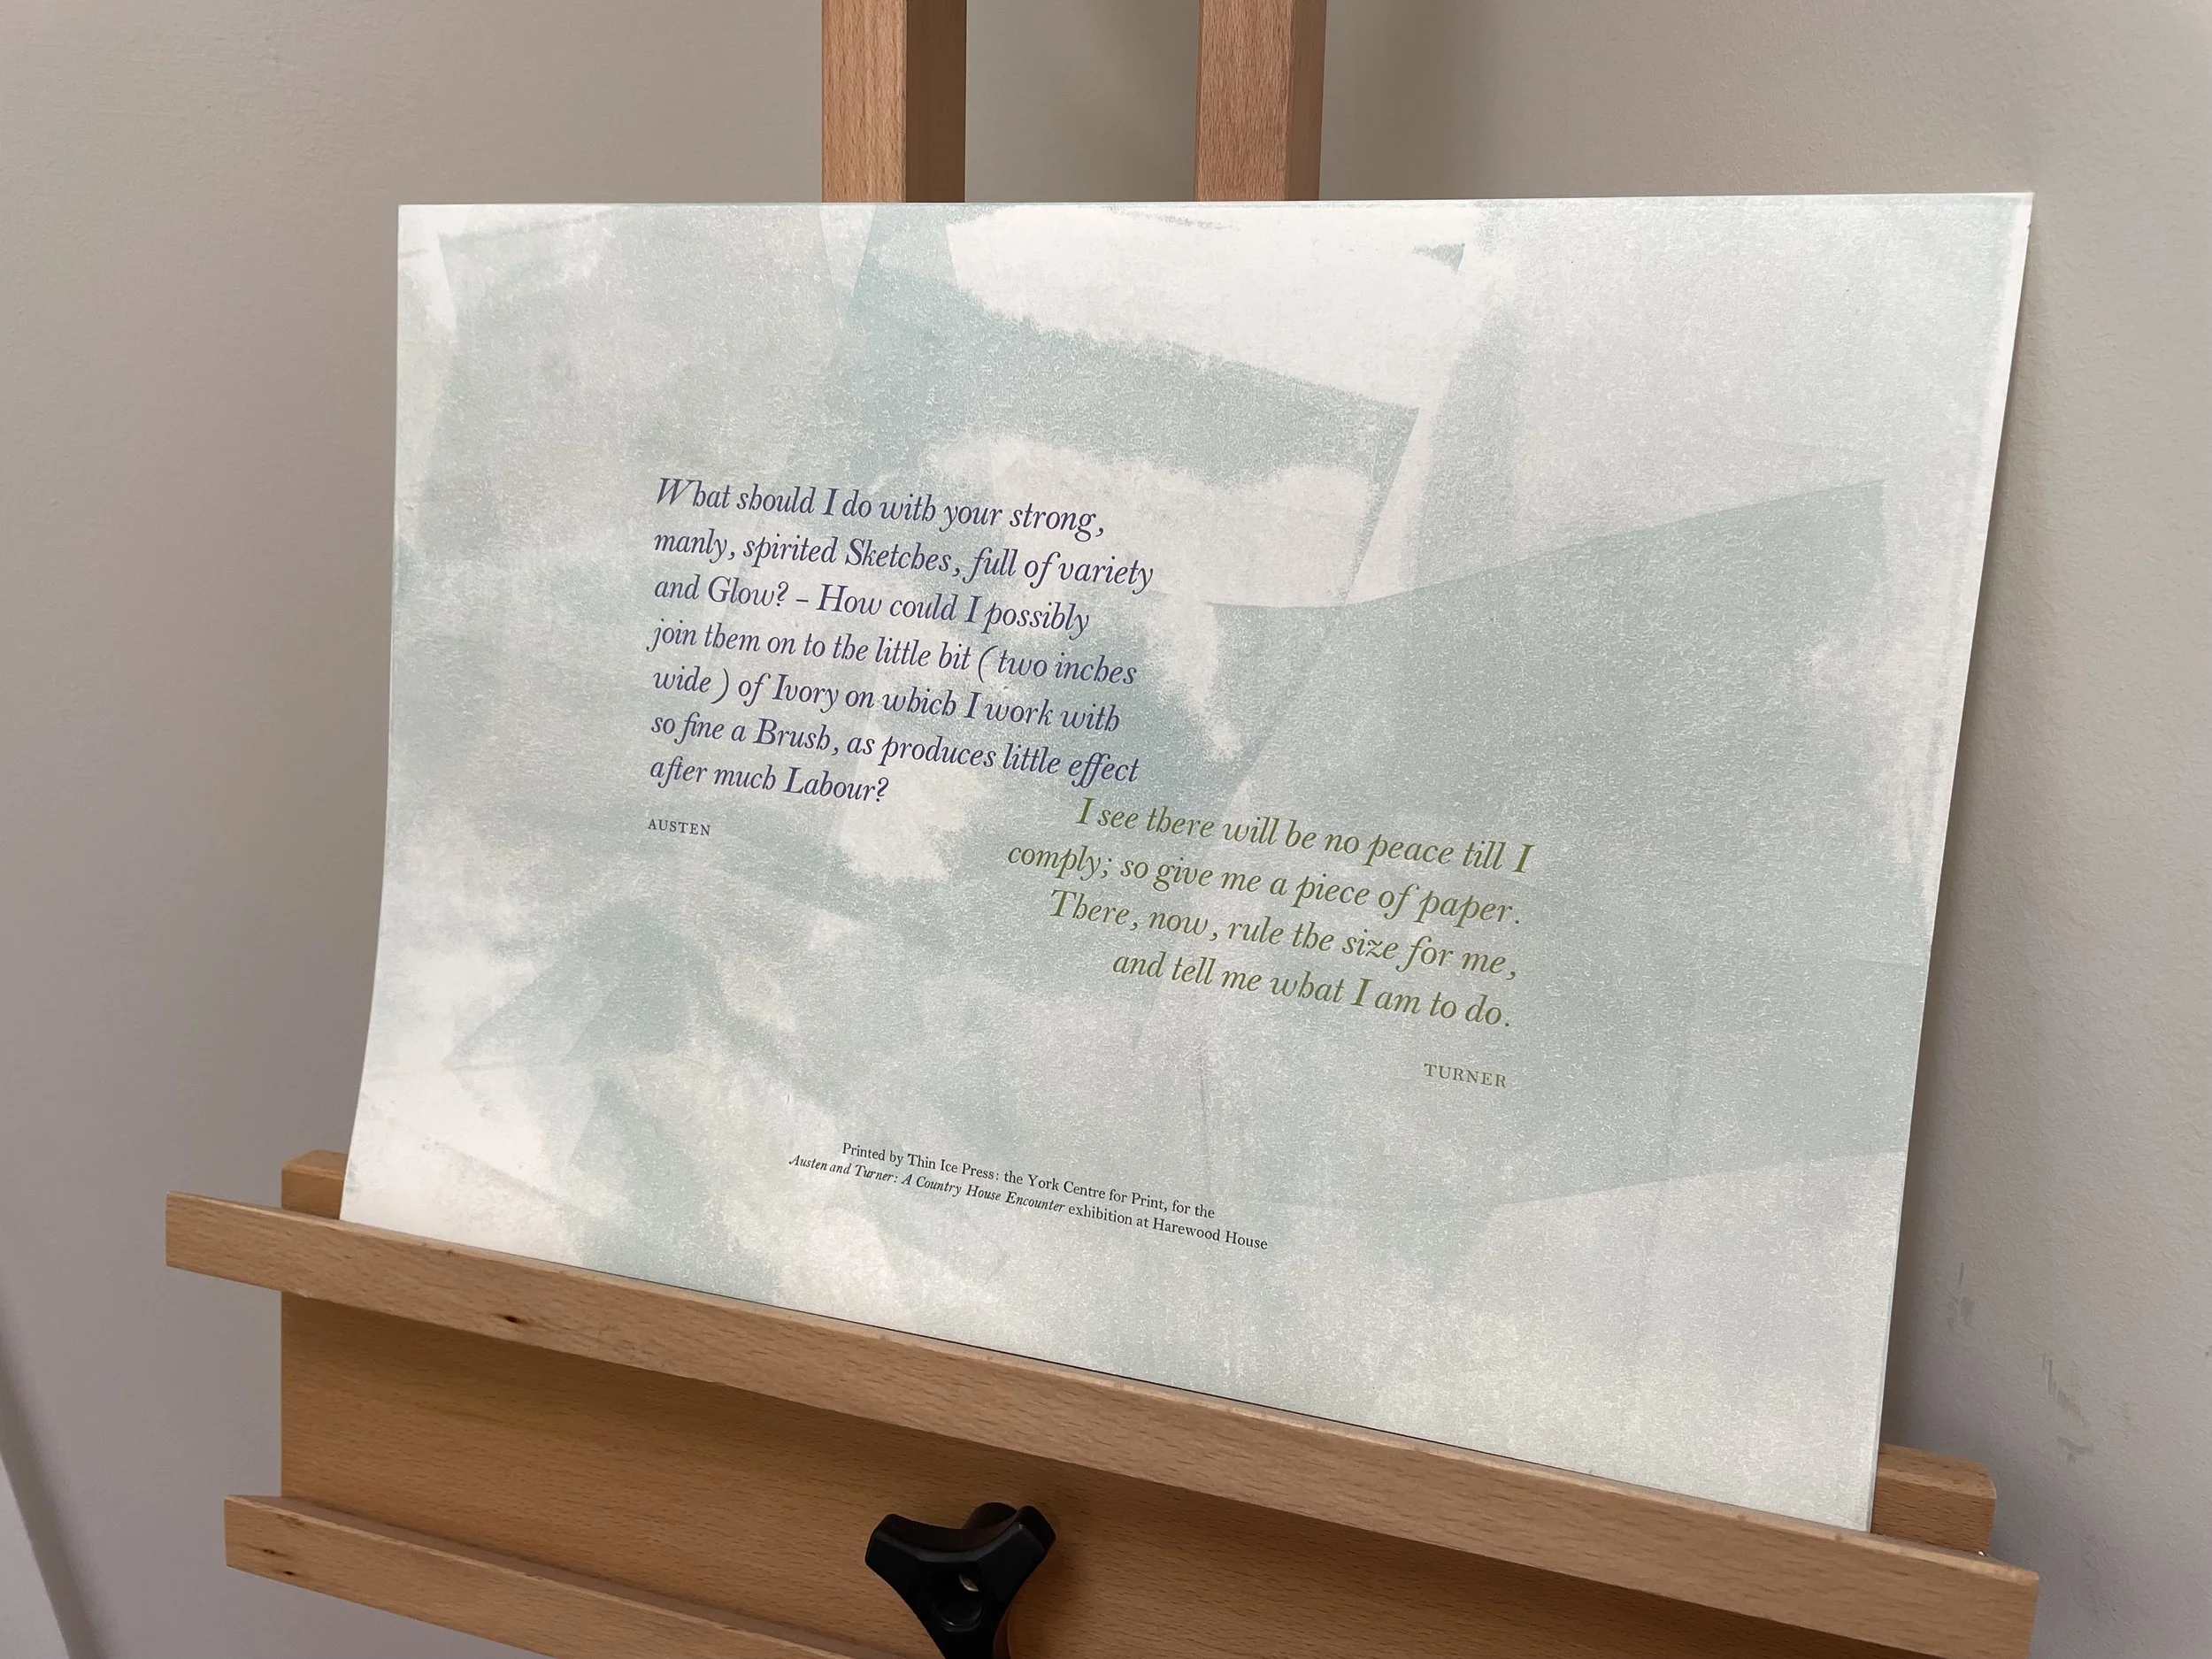 What should I do with your strong,
manly, spirited Sketches, full of variety
and Glow? – How could I possibly
join them on to the little bit ( two inches
wide ) of Ivory on which I work with
so fine a Brush, as produces little effect
after much Labour?
AUSTEN
I see there will be no peace till I
comply; so give me a piece of paper.
There, now, rule the size for me,
and tell me what I am to do.
TURNER
Printed by Thin Ice Press: the York Centre for Print, for the
Austen and Turner: A Country House Encounter exhibition at Harewood House